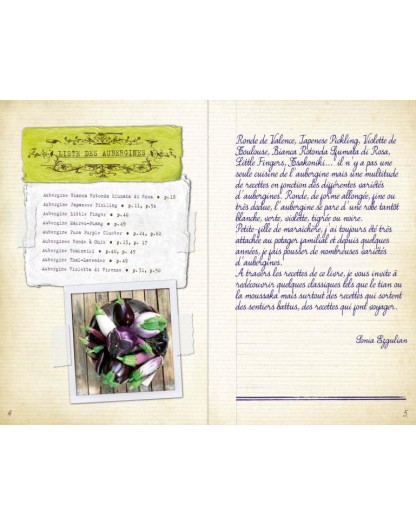 LISTE DES AUBERGINES
Aubergine Bianca Rotonda Sfumata di Rosa • p.18
Aubergine Japanese Pickling • p.11, p.54
Aubergine Little Finger • p.46
Aubergine Mairei-Fuang • p.49
Aubergine Pace Purple Cluster • p.24, p.62
Aubergines Ronde à Oulb • p.15, p. 17
Aubergine Tsakoniki • p.40, p. 45
Aubergine Thaï-Lavender • p.48
Aubergine Violetta di Firenze • p.31, p.50
Ronde de Valence, Japenese Pickling, Violette de
Toulouse, Bianca Rotonda Sfumata di Rosa,
Little Fingers, Tsakoniki... il n'y a pas une
seule cuisine de l'aubergine mais une multitude
de recettes en fonction des différentes variétés
d'aubergines. Ronde, de forme allongée, fine ou
très dodue, l'aubergine se pare d'une robe tantôt
blanche, verte, violette, tigrée ou noire.
Petite-fille de maraîchère, j'ai toujours été très
attachée au potager familial et depuis quelques
années, je fais pousser de nombreuses variétés
d'aubergines.
A travers les recettes de ce livre, je vous invite à
redécouvrir quelques classiques tels que le tian ou
la moussaka mais surtout des recettes qui sortent
des sentiers battus, des recettes qui font voyager.
Sonia Ezgulian
4
5